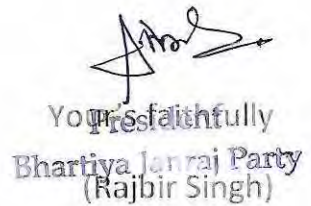 Your's faithfully
President
Bhartiya Janraj Party
(Rajbir Singh)